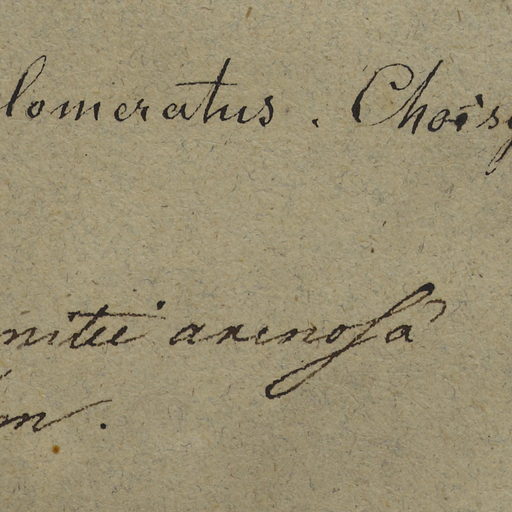 lomeratus. Choisy
nitei arenosâ
m.